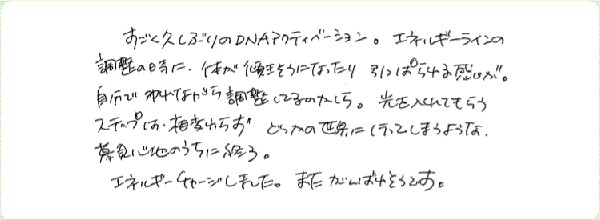 すごく久しぶりのDNAアクティベーション。エネルギーラインの
調整の時に、体が傾きそうになったり引っぱられる感じが。
自分でゆれながら調整してるのかしら。光を入れてもらう
ステップは、相変わらず どっかの世界に行ってしまうような、
夢見心地のうちに終る。
エネルギーチャージしました。またがんばれそうです。